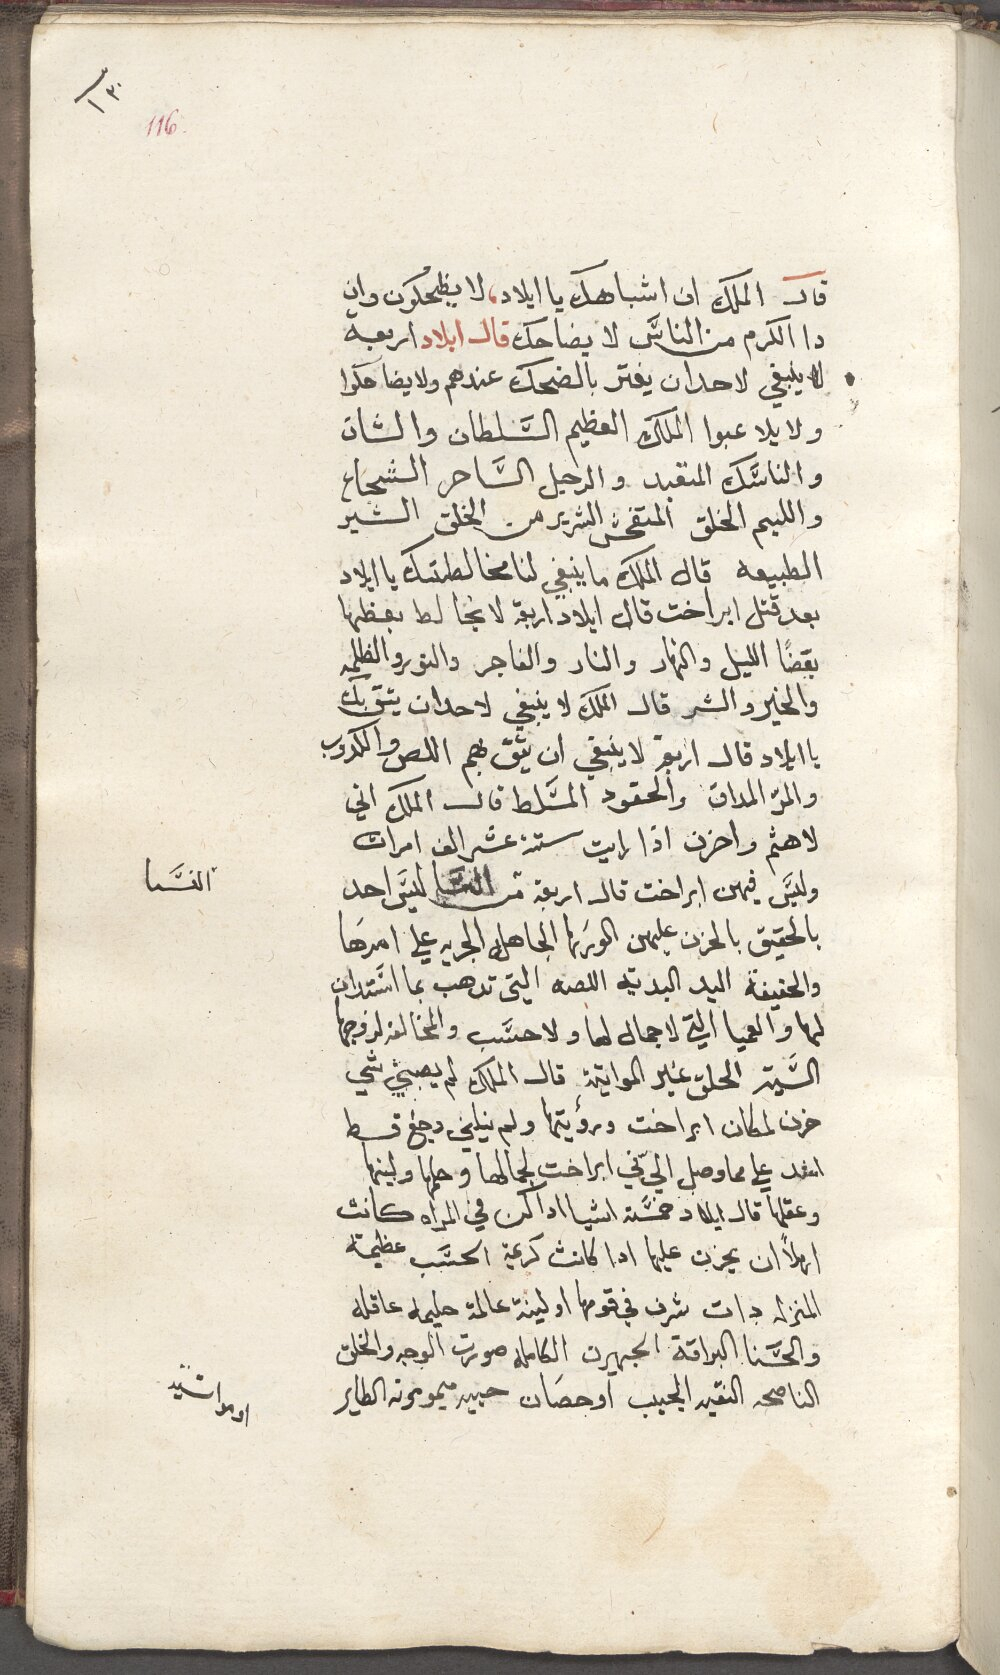 ١٣٠
116
قال الملك ان اشباهك يا ايلاد لا يظحكون وان
دا الكرم من الناس لا يضاحك قال ايلاد اربعة
لا ينبغي لاحد ان يفتر بالضحك عندهم ولا يضاحكوا
ولا يلاعبوا الملك العظيم السلطان والشان
والناسك المتعبد والرجل الساحر الشجاع
واللييم الخلق المتفحش الشرير من الخلق الشير
الطبيعه قال الملك ما ينبغي لنا مخالطتك يا ايلاد
بعد قتل ايراخت قال ايلاد اربعة لا يخالط بعظها
بعضا الليل والنهار والنار والفاجر والنور والظلمه
والخير والشر قال الملك لا ينبغي لاحد ان يثق بك
يا ايلاد قال اربعة لا ينبغي ان يثق بهم اللص والكدوب
والمر المداق والحقود المسلط قال الملك اني
لاهتم واحزن اذا رايت ستة عشر الف امراة
وليس فيهن ايراخت قال اربعة من النسا ليس احد
النسا
بالحقيق بالحزن عليهن الورها الجاهل الجريه على امرها
والخفيفة اليد البديه اللصه التي تدهب بما استدان
لها والعميا التي لا جمال لها ولا حسب والمخالفة لزوجها
السية الخلق غير المواتية قال الملك لم يصبني شي
حزن لمكان ايراخت ورؤيتها ولم ينلني وجع قط
اشد علي مما وصل الي في ايراخت لجمالها وحلمها ولينها
وعقلها قال ايلاد خمسة اشيا ادا كن في المراه كانت
اهلا ان يحزن عليها ادا كانت كريمة الحسب عظيمة
المنزله دات شرف في قومها او لينة عالمة حليمه عاقله
والحسنا البراقة الجبين الكامله صورت الوجه والخلق
الناصحه النقيه الجيب او حصان حييه ميمونه الطاير